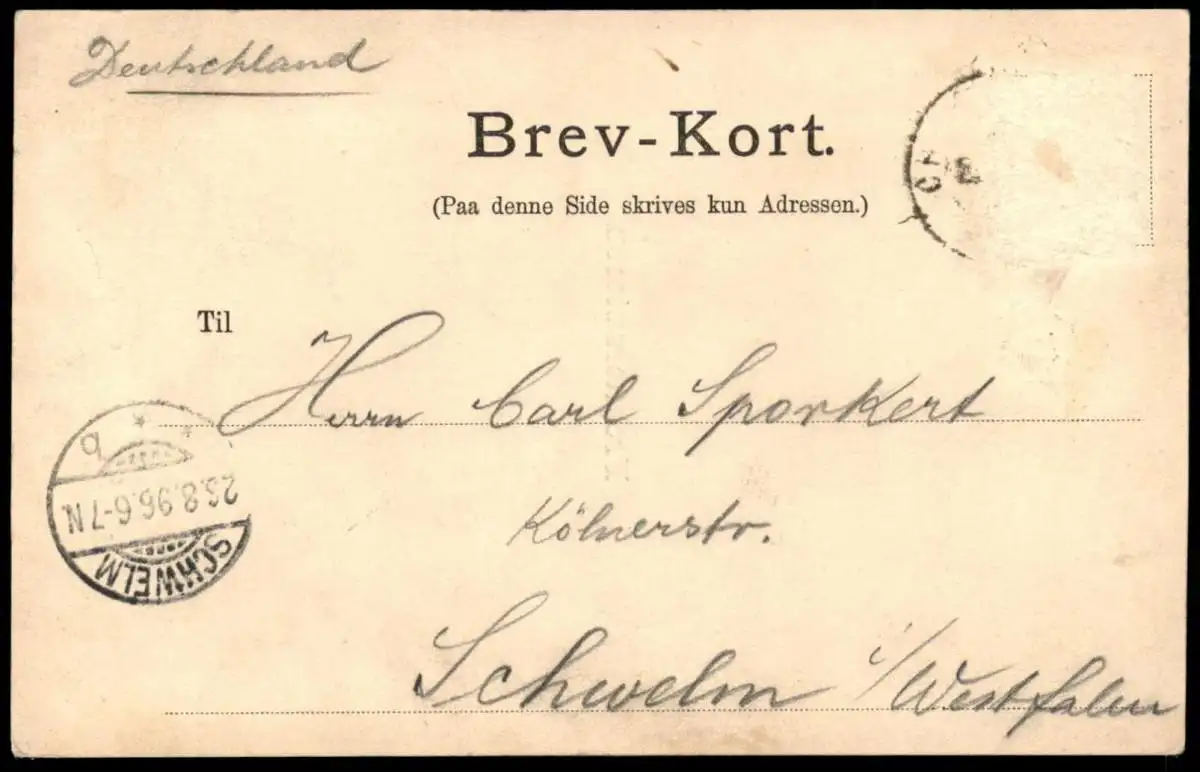 Deutschland
Brev-Kort.
(Paa denne Side skrives kun Adressen.)
Til
Herrn Carl Sporkert
Kölnerstr.
Schwelm i/Westfalen
SCHWELM
23.8.96.6-7N.
b